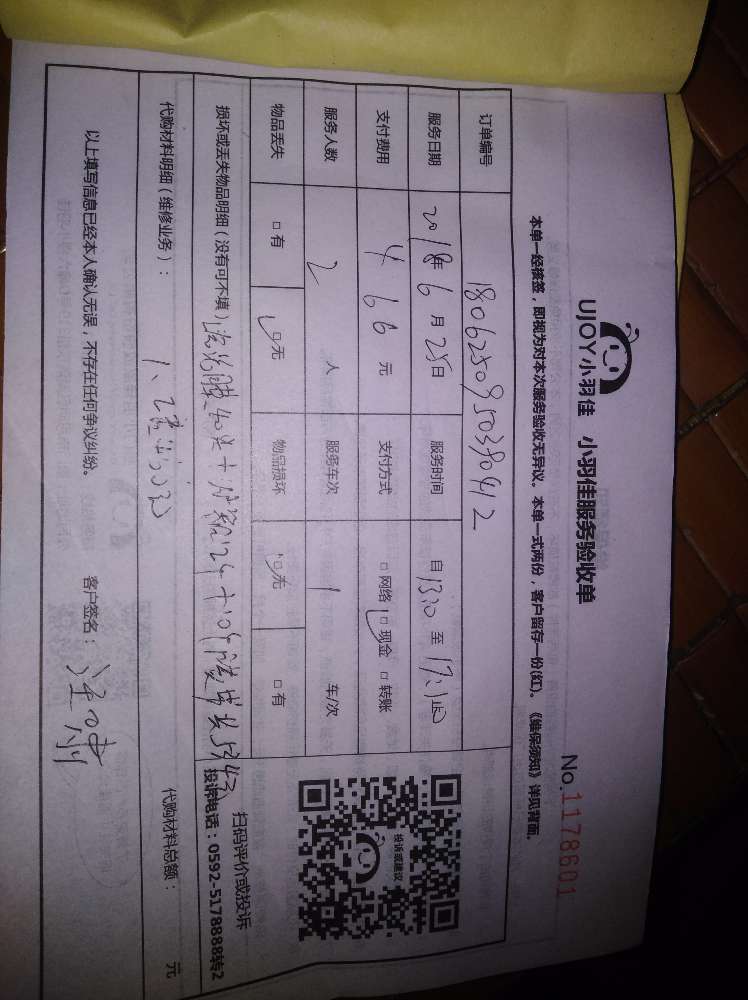 UJOY小羽佳 小羽佳服务验收单
No.1178601
本单一经核签，即视为对本次服务验收无异议。本单一式两份，客户留存一份(红)。《维保须知》详见背面。
订单编号 1806250950390412
服务日期 2018年6月25日 服务时间 自13:10至17:
支付费用 466元 支付方式 □网络 □现金 □转账
服务人数 2人 服务车次 1 车/次
物品丢失 □有 □无 物品损坏 □无 □有
投诉或建议
扫码评价或投诉
投诉电话：0592-5178888转2
损坏或丢失物品明细（没有可不填）
代购材料明细（维修业务）： 代购材料总额： 元
以上填写信息已经本人确认无误，不存在任何争议纠纷。 客户签名：